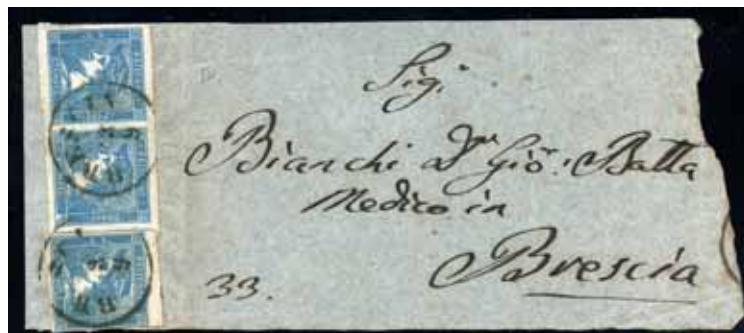 Sig.
Bianchi Dr Gio: Batta
Medico in
Brescia
33.